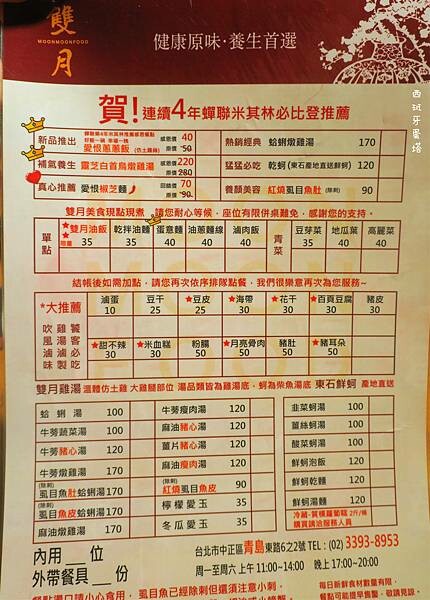 雙月
MOONMOONFOOD
健康原味·養生首選
西班牙蛋塔
賀!連續4年蟬聯米其林必比登推薦
新品推出 愛恨蔥蔥飯(仿土雞絲) 感恩價 40 原價 50
熱銷經典 蛤蜊燉雞湯 170
補氣養生 靈芝白首烏燉雞湯 感恩價 220 原價 280
猛猛必吃 乾蚵(東石產地直送鮮蚵) 120
真心推薦 愛恨椒芝麵 回饋價 70 原價 90
養顏美容 紅燒虱目魚肚(除刺) 90
雙月美食現點現煮,請您耐心等候,座位有限併桌難免,感謝您的支持。
單點
雙月油飯 35
乾拌油麵 35
蛋意麵 40
油蔥麵線 40
滷肉飯 40
青菜
豆芽菜 35
地瓜菜 40
高麗菜 40
結帳後如需加點,請您再次依序排隊點餐,我們很樂意再次為您服務~
*大推薦
滷蛋 10
豆干 25
★豆皮 25
★海帶 30
★花干 30
★百頁豆腐 30
豬皮 30
吹雞饕
風湯客
滷滷必
味製吃
★甜不辣 30
★米血糕 30
粉腸 50
★月亮骨肉 50
豬肚 50
★豬耳朵 50
雙月雞湯 溫體仿土雞 大雞腿部位 湯品類皆為雞湯底,蚵為柴魚湯底 東石鮮蚵 產地直送
蛤蜊湯 100
牛蒡瘦肉湯 120
韭菜蚵湯 100
牛蒡蔬菜湯 100
麻油豬心湯 120
薑絲蚵湯 100
牛蒡豬心湯 120
薑片豬心湯 120
酸菜蚵湯 100
牛蒡燉雞湯 170
麻油瘦肉湯 120
鮮蚵泡飯 120
(除刺)虱目魚肚蛤蜊湯 170
(除刺)紅燒虱目魚皮 90
鮮蚵乾麵 120
虱目魚皮蛤蜊湯 170
檸檬愛玉 35
鮮蚵湯麵 120
麻油燉雞湯 170
冬瓜愛玉 35
購買請洽服務人員
內用___位
外帶餐具___份
台北市中正區青島東路6之2號 TEL:(02) 3393-8953
周一至周六 上午 11:00~14:00 晚上 17:00~20:00
每日新鮮食材數量有限,
餐點可能提早售罄,敬請見諒。